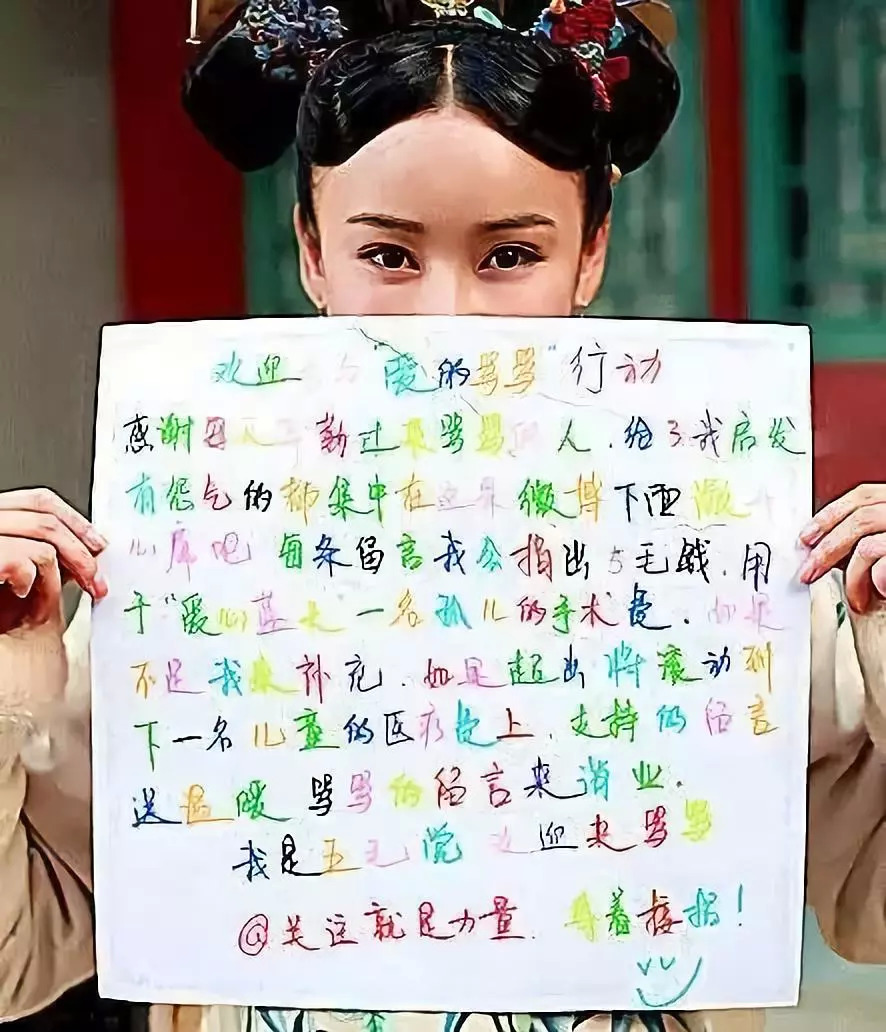 欢迎参与“爱的骂骂”行动
感谢每天辛勤过来骂骂的人.给了我启发
有怨气的都集中在这条微博下面激开
心扉吧 每条留言我公捐出5毛钱.用
于“爱心蓝天一名孤儿的手术费.如果
不足我来补充.如是超出将滚动到
下一名儿童的医疗费上.支持的留言
送温暖 骂骂的留言来消业.
我是五毛党 欢迎来骂骂
@关注就是力量. 等着接招!